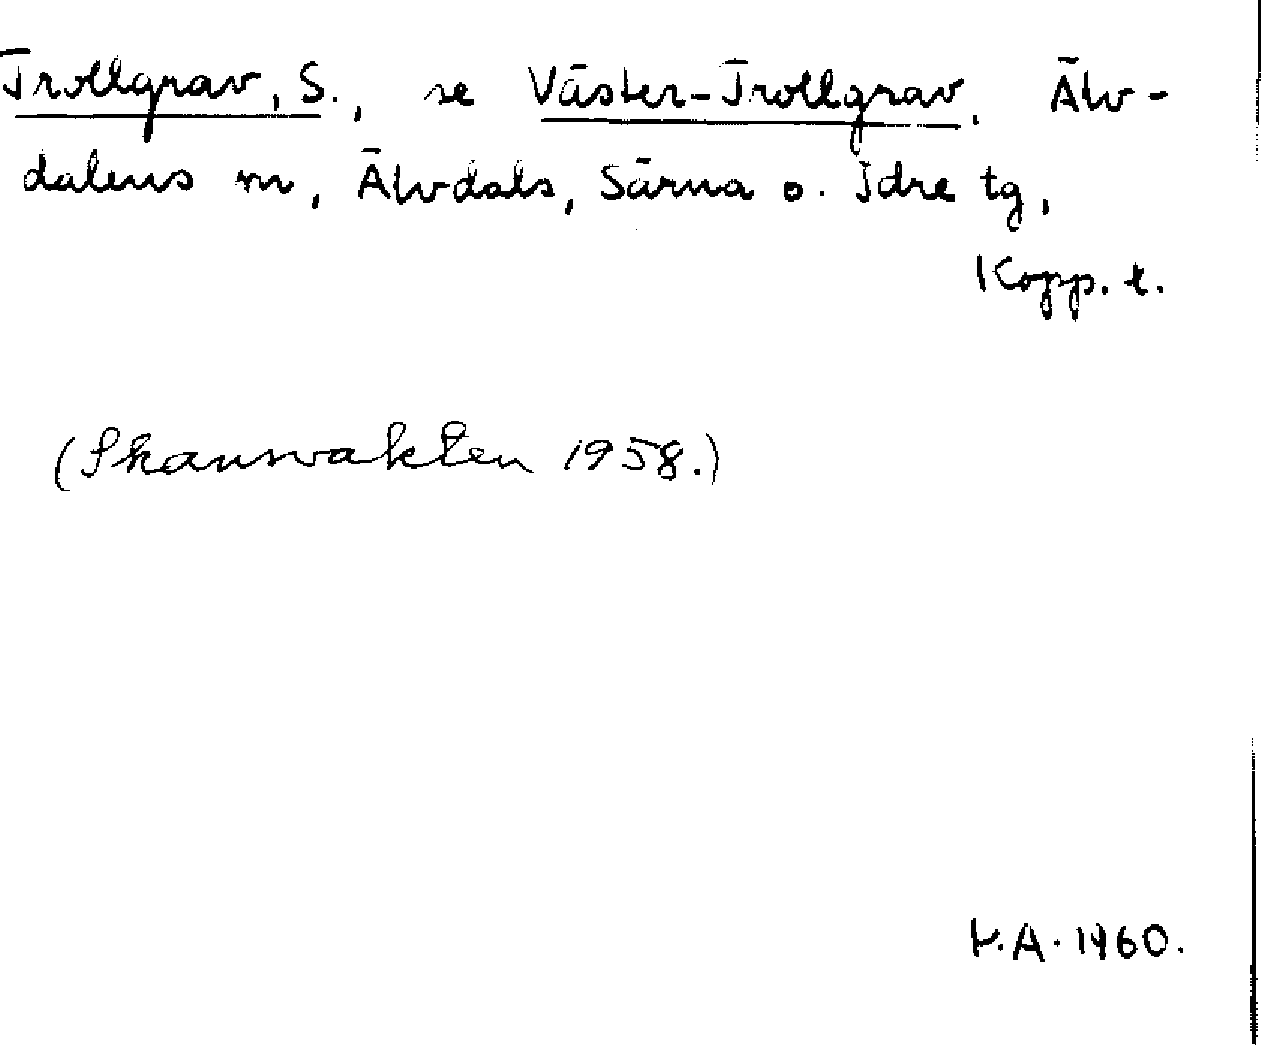 Trollgrav, S., se Väster-Trollgrav. Älv-
dalens m, Älvdals, Särna o. Idre tg,
Kopp. l.
(Skansvakten 1958.)
H.A. 1960.